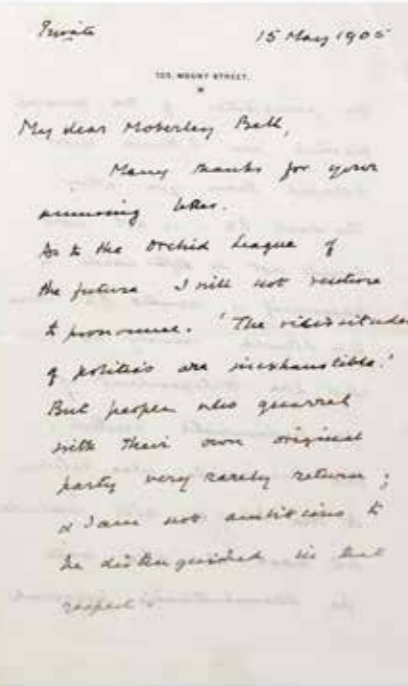 Private
15 May 1905
105, MOUNT STREET.
My dear Moberley Bell,
Many thanks for your
amusing letter.
As to the Orchid League of
the future I will not venture
to pronounce. 'The vicissitudes
of politics are inexhaustible.'
But people who quarrel
with their own original
party very rarely return;
& I am not ambitious to
be distinguished in that
respect.